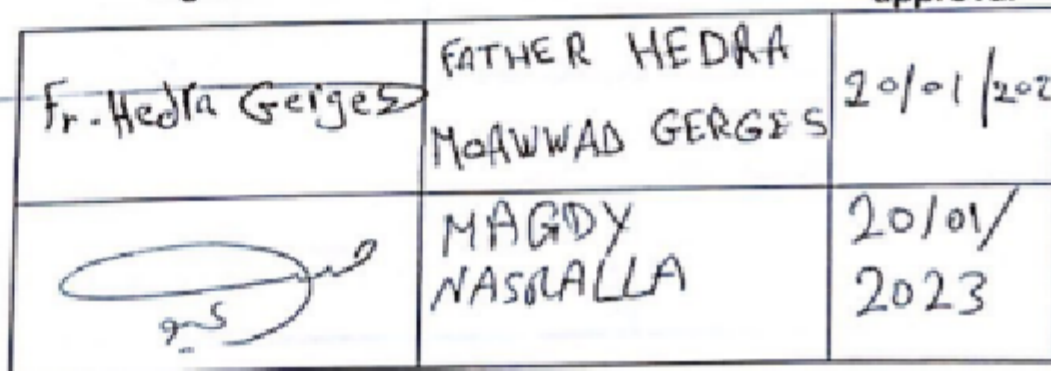 Fr. Hedra Gerges
FATHER HEDRA
MOAWWAD GERGES
20/01/202
MAGDY
NASRALLA
20/01/
2023